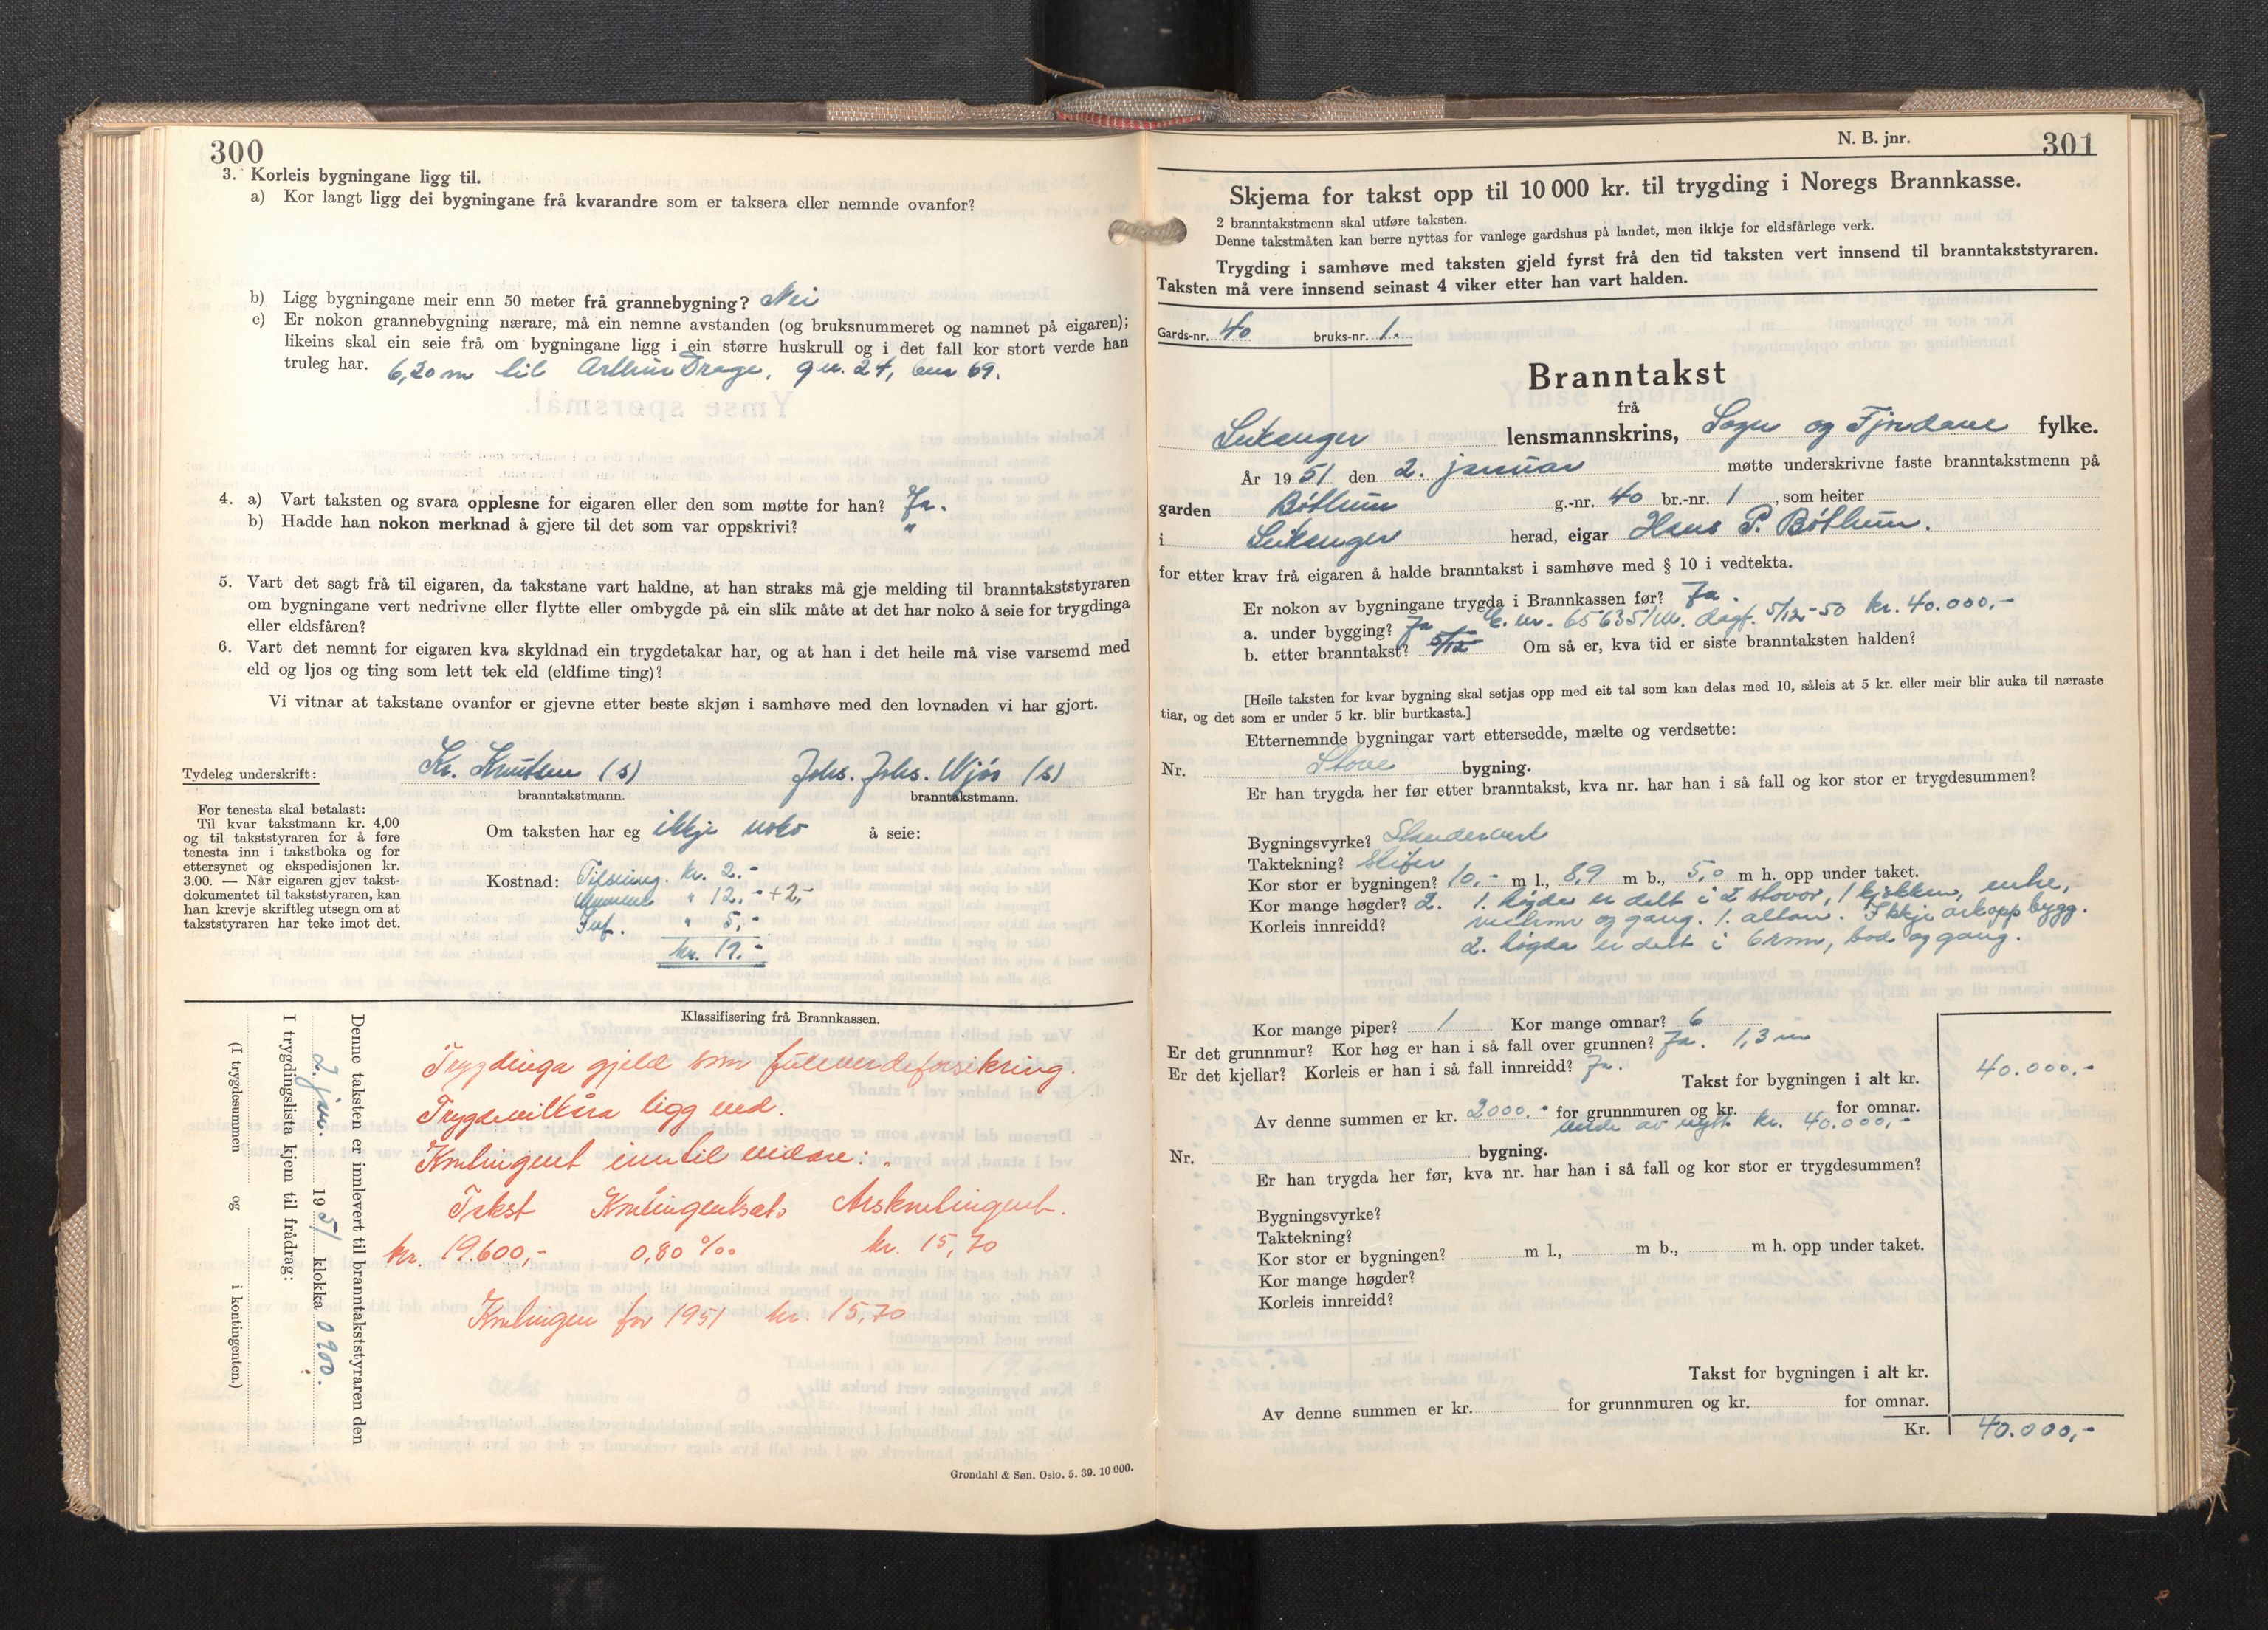 300
3. Korleis bygningane ligg til.
a) Kor langt ligg dei bygningane frå kvarandre som er taksera eller nemnde ovanfor?
b) Ligg bygningane meir enn 50 meter frå grannebygning? Nei
c) Er nokon grannebygning nærare, må ein nemne avstanden (og bruksnummeret og namnet på eigaren);
likeins skal ein seie frå om bygningane ligg i ein større huskrull og i det fall kor stort verde han
truleg har. 6,20 m til Arthur Drage, gnr. 24, bnr 69.
4. a) Vart taksten og svara opplesne for eigaren eller den som møtte for han? Ja.
b) Hadde han nokon merknad å gjere til det som var oppskrivi? "
5. Vart det sagt frå til eigaren, da takstane vart haldne, at han straks må gje melding til branntakststyraren
om bygningane vert nedrivne eller flytte eller ombygde på ein slik måte at det har noko å seie for trygdinga
eller eldsfåren?
6. Vart det nemnt for eigaren kva skyldnad ein trygdetakar har, og at han i det heile må vise varsemd med
eld og ljos og ting som lett tek eld (eldfime ting)?
Vi vitnar at takstane ovanfor er gjevne etter beste skjøn i samhøve med den lovnaden vi har gjort.
Tydeleg underskrift: Kr. Knutsen (s) Johs. Johs. Njøs (s)
branntakstmann. branntakstmann.
For tenesta skal betalast:
Til kvar takstmann kr. 4,00
og til takststyraren for å føre
tenesta inn i takstboka og for
ettersynet og ekspedisjonen kr.
3.00. — Når eigaren gjev takst-
dokumentet til takststyraren, kan
han krevje skriftleg utsegn om at
takststyraren har teke imot det.
Om taksten har eg ikkje noko å seie:
Kostnad: Tilseiing. kr. 2.-
" 12.- +2,-
" 5,-
kr. 19.-
Klassifisering frå Brannkassen.
Trygdinga gjeld som fullverdeforsikring.
Trygdevilkåra ligg ved.
Kontingent inntil vidare:
Takst Kontingentsats Årskontingent.
kr. 19.600,- 0,80 ‰ kr. 15,70
Kontingen for 1951 kr. 15,70
Denne taksten er innlevert til branntakststyraren den
2. jan. 1951 klokka 0900.
I trygdingslista kjem til frådrag:
(I trygdesummen og i kontingenten.)
Grøndahl & Søn. Oslo. 5. 39. 10 000.
N. B. jnr.
301
Skjema for takst opp til 10 000 kr. til trygding i Noregs Brannkasse.
2 branntakstmenn skal utføre taksten.
Denne takstmåten kan berre nyttas for vanlege gardshus på landet, men ikkje for eldsfårlege verk.
Trygding i samhøve med taksten gjeld fyrst frå den tid taksten vert innsend til branntakststyraren.
Taksten må vere innsend seinast 4 viker etter han vart halden.
Gards-nr. 40 bruks-nr. 1.
Branntakst
frå
Leikanger lensmannskrins, Sogn og Fjordane fylke.
År 1951 den 2. januar møtte underskrivne faste branntakstmenn på
garden Bøthun g.-nr. 40 br.-nr. 1, som heiter
i Leikanger herad, eigar Hans P. Bøthun.
for etter krav frå eigaren å halde branntakst i samhøve med § 10 i vedtekta.
Er nokon av bygningane trygda i Brannkassen før? Ja.
a. under bygging? Ja nr. 65635/M. dagf. 5/12-50 kr. 40.000,-
b. etter branntakst? 5/12 Om så er, kva tid er siste branntaksten halden?
[Heile taksten for kvar bygning skal setjas opp med eit tal som kan delas med 10, såleis at 5 kr. eller meir blir auka til næraste
tiar, og det som er under 5 kr. blir burtkasta.]
Etternemnde bygningar vart ettersedde, mælte og verdsette:
Nr. Stove bygning.
Er han trygda her før etter branntakst, kva nr. har han i så fall og kor stor er trygdesummen?
Bygningsvyrke? Standerverk
Taktekning? Skifer
Kor stor er bygningen? 10,- m l., 8,9 m b., 5,0 m h. opp under taket.
Kor mange høgder? 2. 1. høgda er delt i 2 stovor, 1 kjøkken,
Korleis innreidd? og gang. 1. altan. Ikkje arkoppbygg.
2. høgda er delt i 6 rom, bod og gang.
Kor mange piper? 1 Kor mange omnar? 6
Er det grunnmur? Kor høg er han i så fall over grunnen? Ja. 1,3 m
Er det kjellar? Korleis er han i så fall innreidd? Ja.
Takst for bygningen i alt kr. 40.000.-
Av denne summen er kr. 2000.- for grunnmuren og kr. for omnar.
Verde av nytt kr. 40.000,-
Nr. bygning.
Er han trygda her før, kva nr. har han i så fall og kor stor er trygdesummen?
Bygningsvyrke?
Taktekning?
Kor stor er bygningen? m l., m b., m h. opp under taket.
Kor mange høgder?
Korleis innreidd?
Takst for bygningen i alt kr.
Av denne summen er kr. for grunnmuren og kr. for omnar.
Kr. 40.000,-